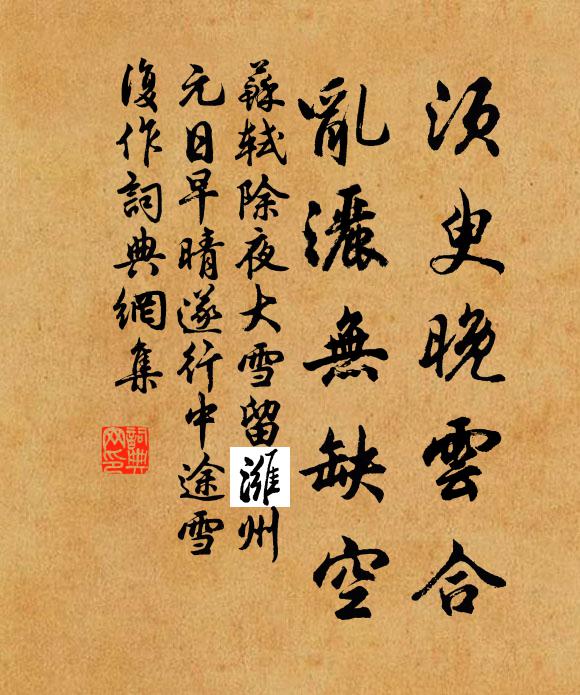 須臾晚雲合
亂灑無缺空
蘇軾除夜大雪留濰州
元日早晴遂行中途雪
復作詞典網集
詞典網印